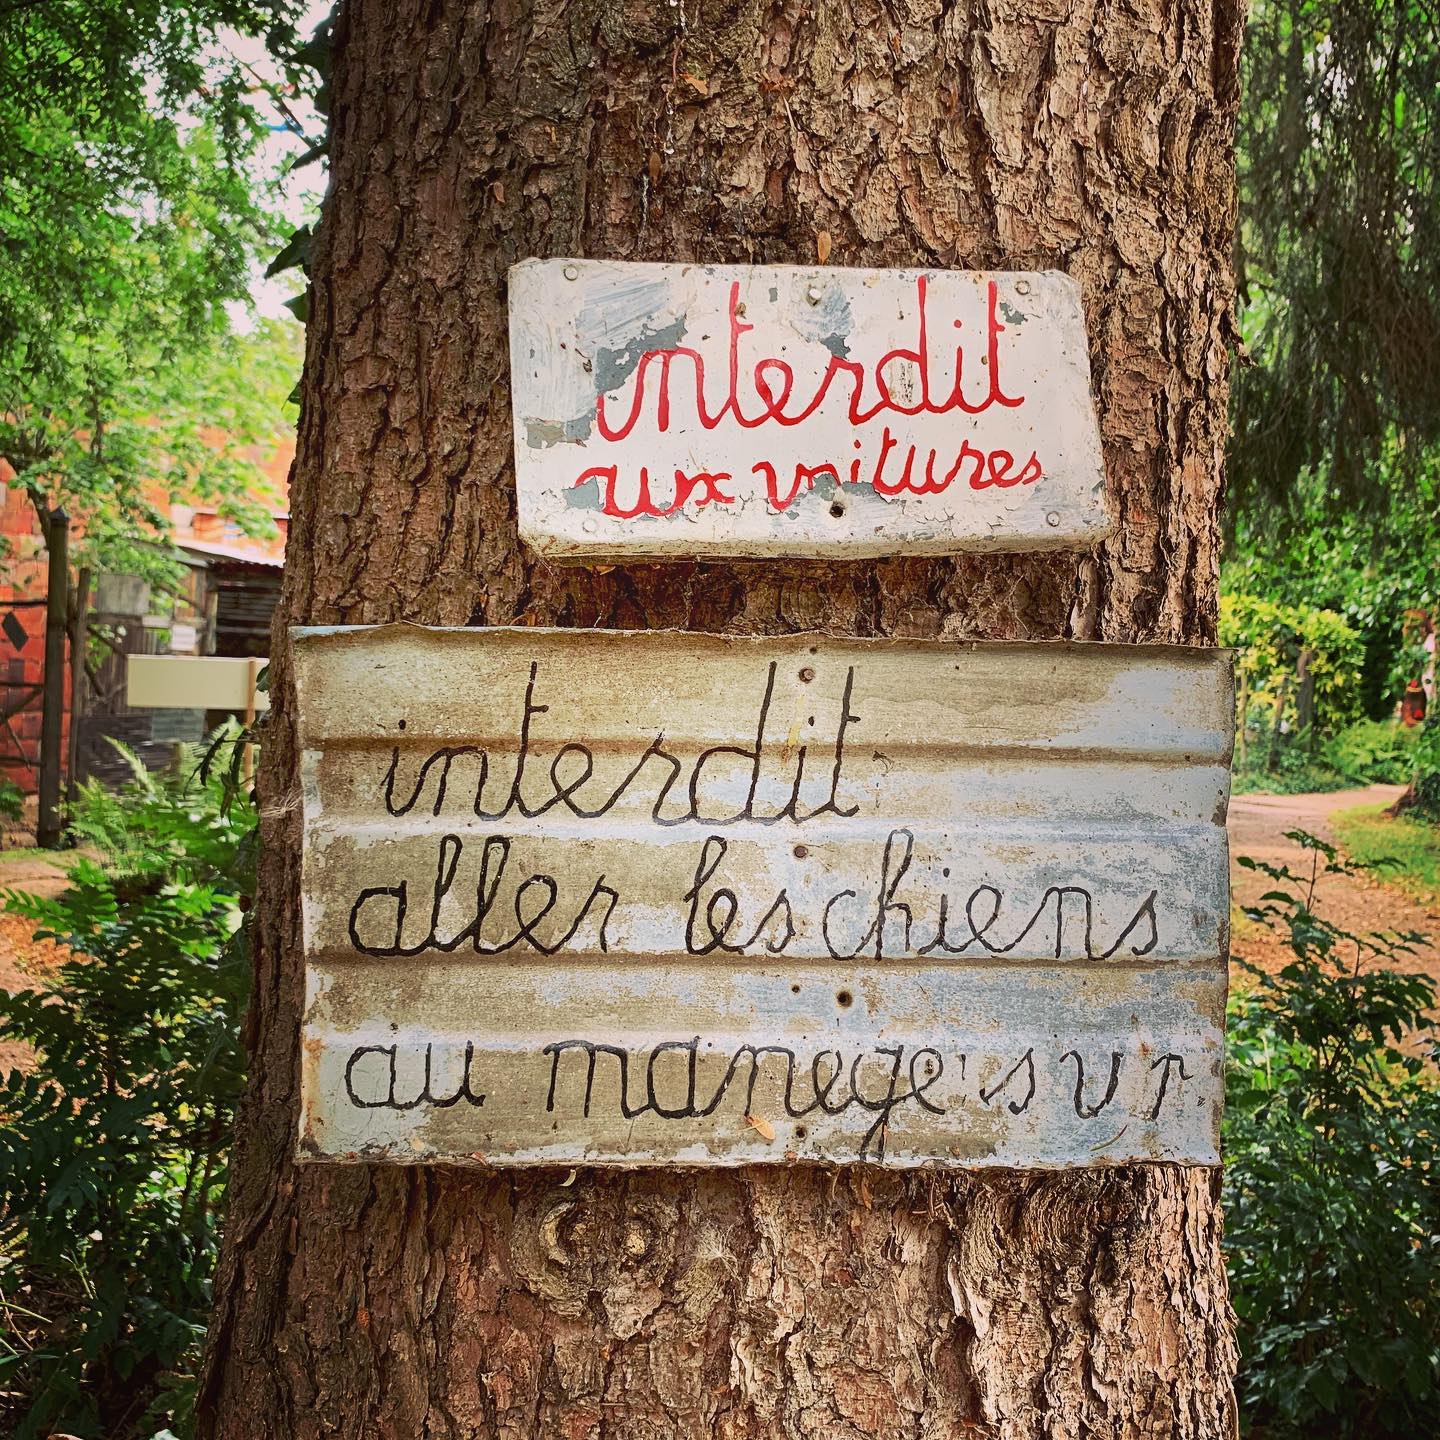 interdit
aux voitures
interdit
aller les chiens
au manege sur